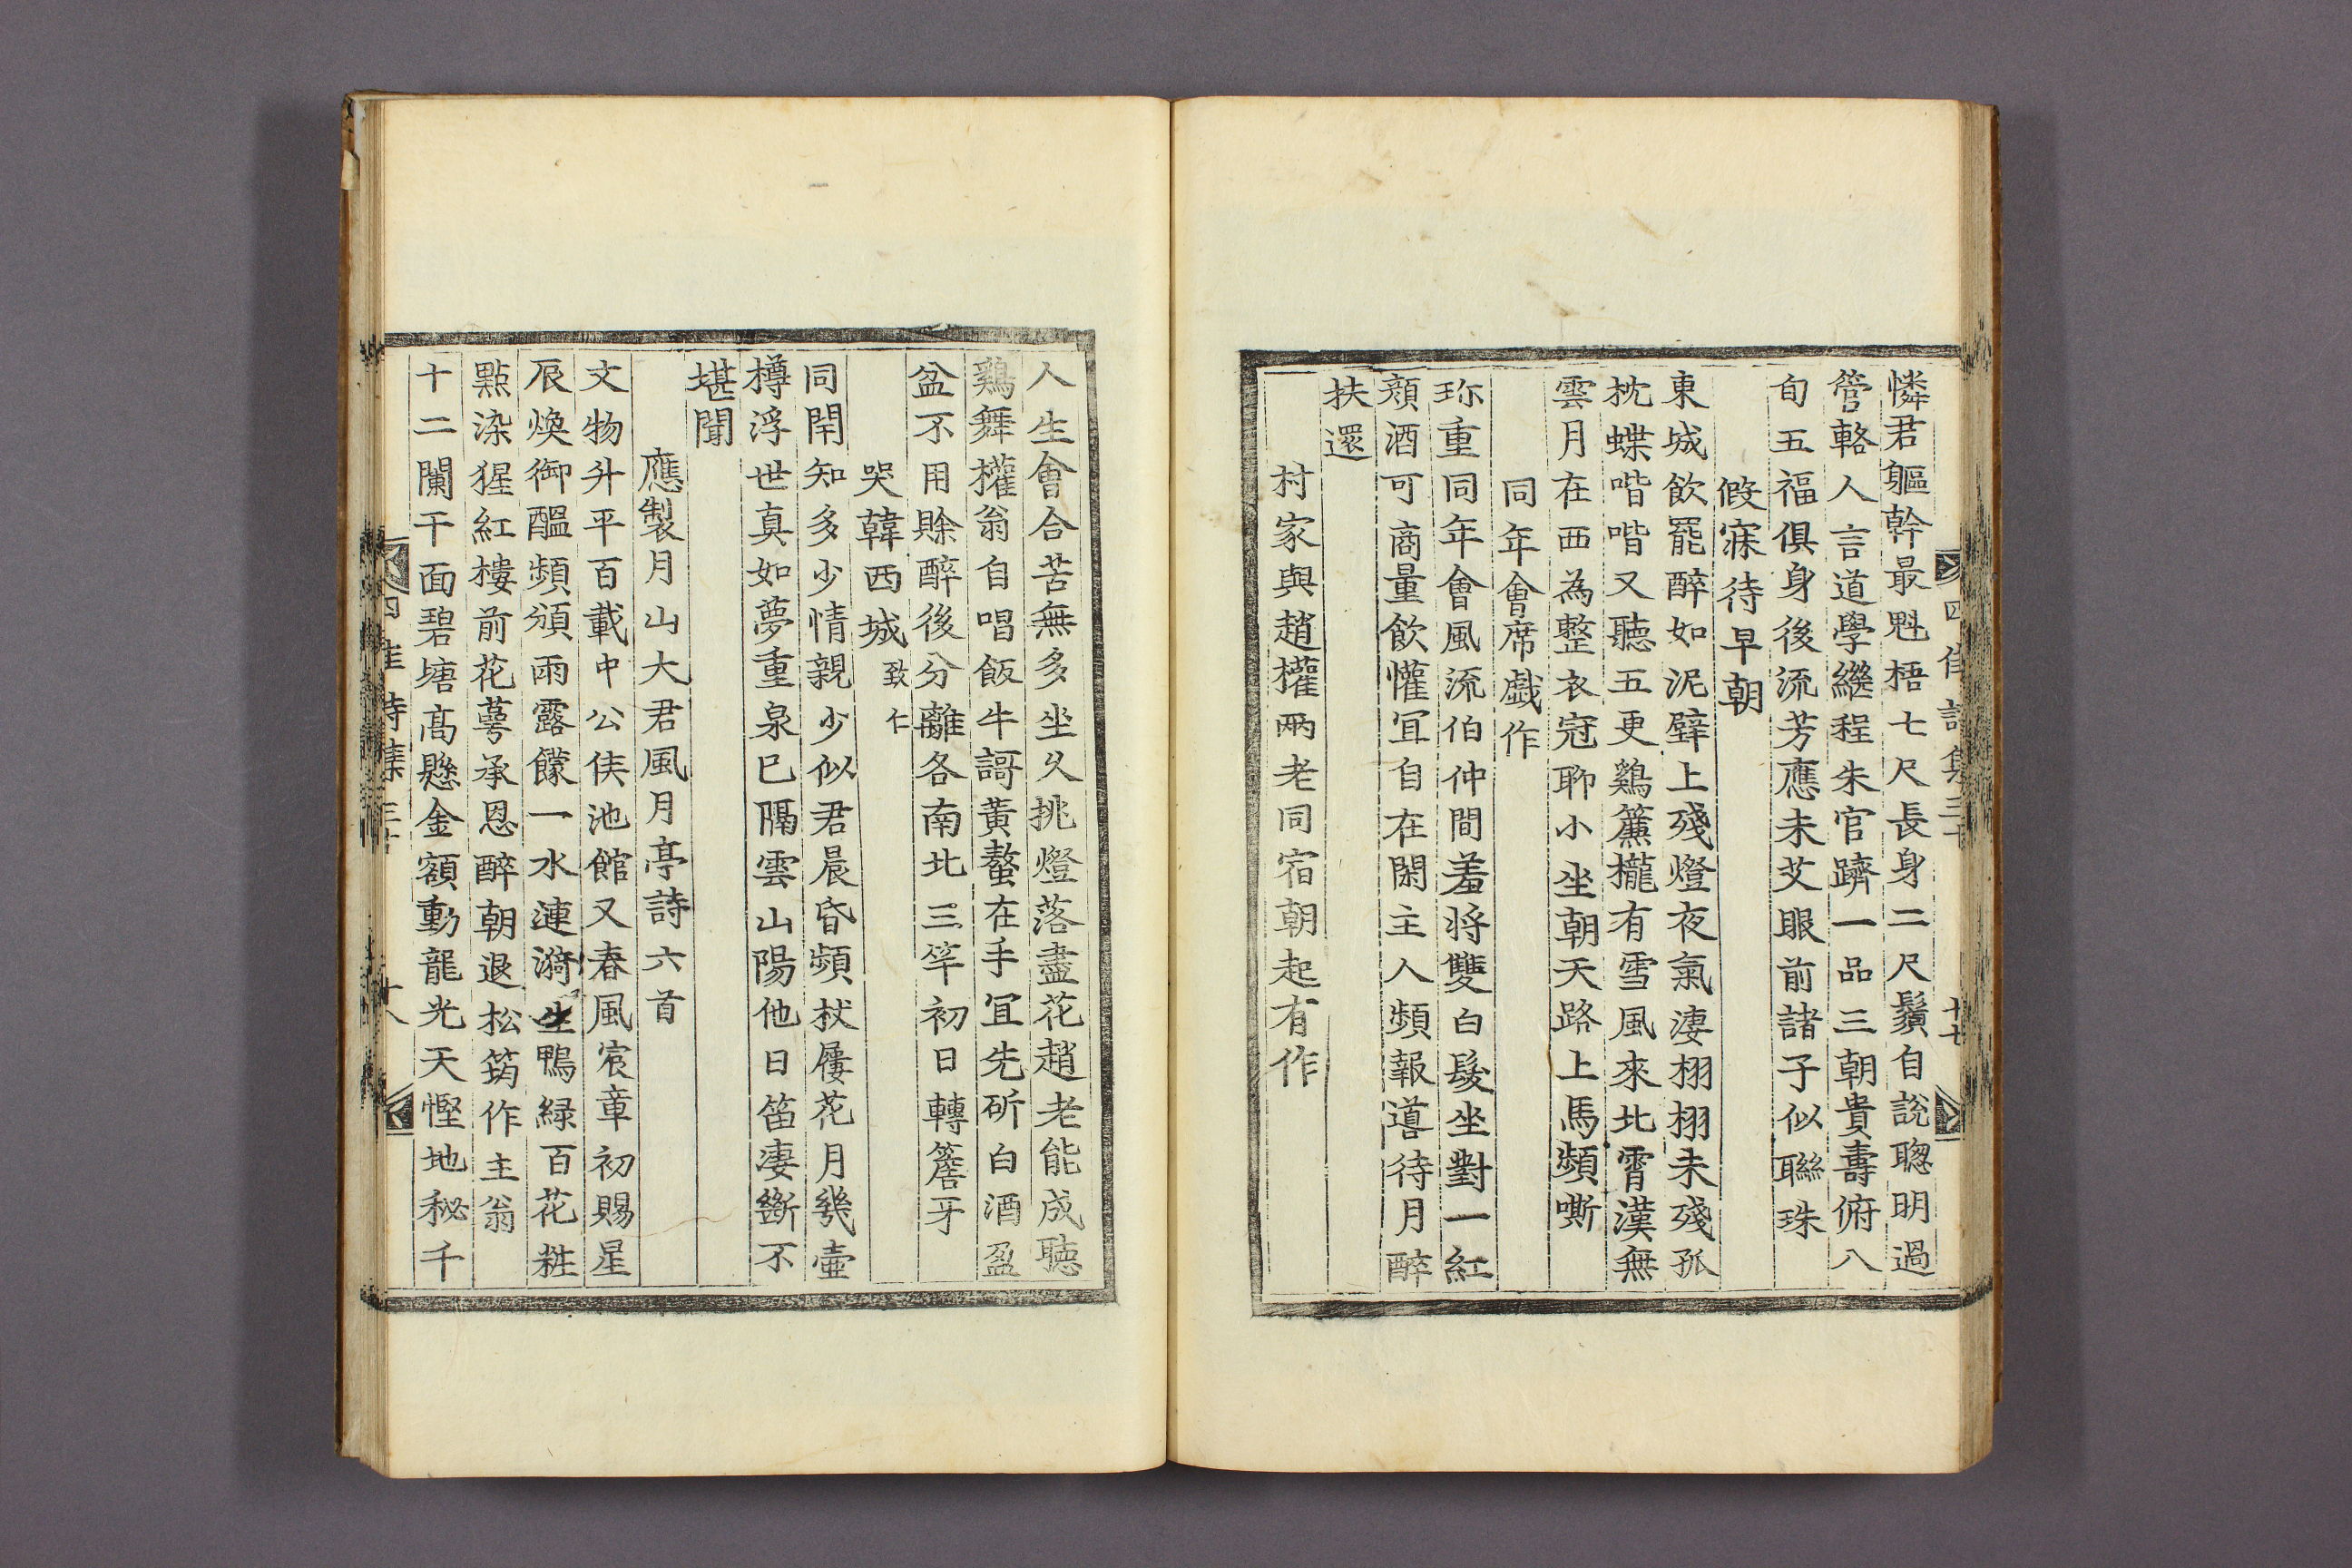 憐君軀幹最魁梧七尺長身二尺鬚自說聦明過
管輅人言道學繼程朱官躋一品三朝貴壽俯八
旬五福俱身後流芳應未艾眼前諸子似聯珠
假寐待早朝
東城飮罷醉如泥壁上殘燈夜氣凄栩栩未殘孤
枕蝶喈喈又聽五更鷄簾櫳有雪風來北霄漢無
雲月在西為整衣冠聊小坐朝天路上馬頻嘶
同年會席戲作
珎重同年會風流伯仲間羞将雙白髮坐對一紅
頰酒可商量飮懽冝自在閑主人頻報噵待月醉
扶還
村家與趙權兩老同宿朝起有作
四佳詩集三十
十七
人生會合苦無多坐久挑燈落盡花趙老能成聴
鷄舞權翁自唱飯牛謌黃螯在手冝先斫白酒盈
盆不用賖醉後分離各南北三竿初日轉簷牙
哭韓西城致仁
同閈知多少情親少似君晨昏頻杖屨花月幾壷
樽浮世真如夢重泉已隔雲山陽他日笛凄斷不
堪聞
應製月山大君風月亭詩六首
文物升平百載中公侯池館又春風宸章初賜星
辰煥御醞頻頒雨露饛一水漣漪生鴨緑百花粧
點染猩紅樓前花萼承恩醉朝退松筠作主翁
十二闌干面碧塘高懸金額動龍光天慳地秘千
四佳詩集三十
十八